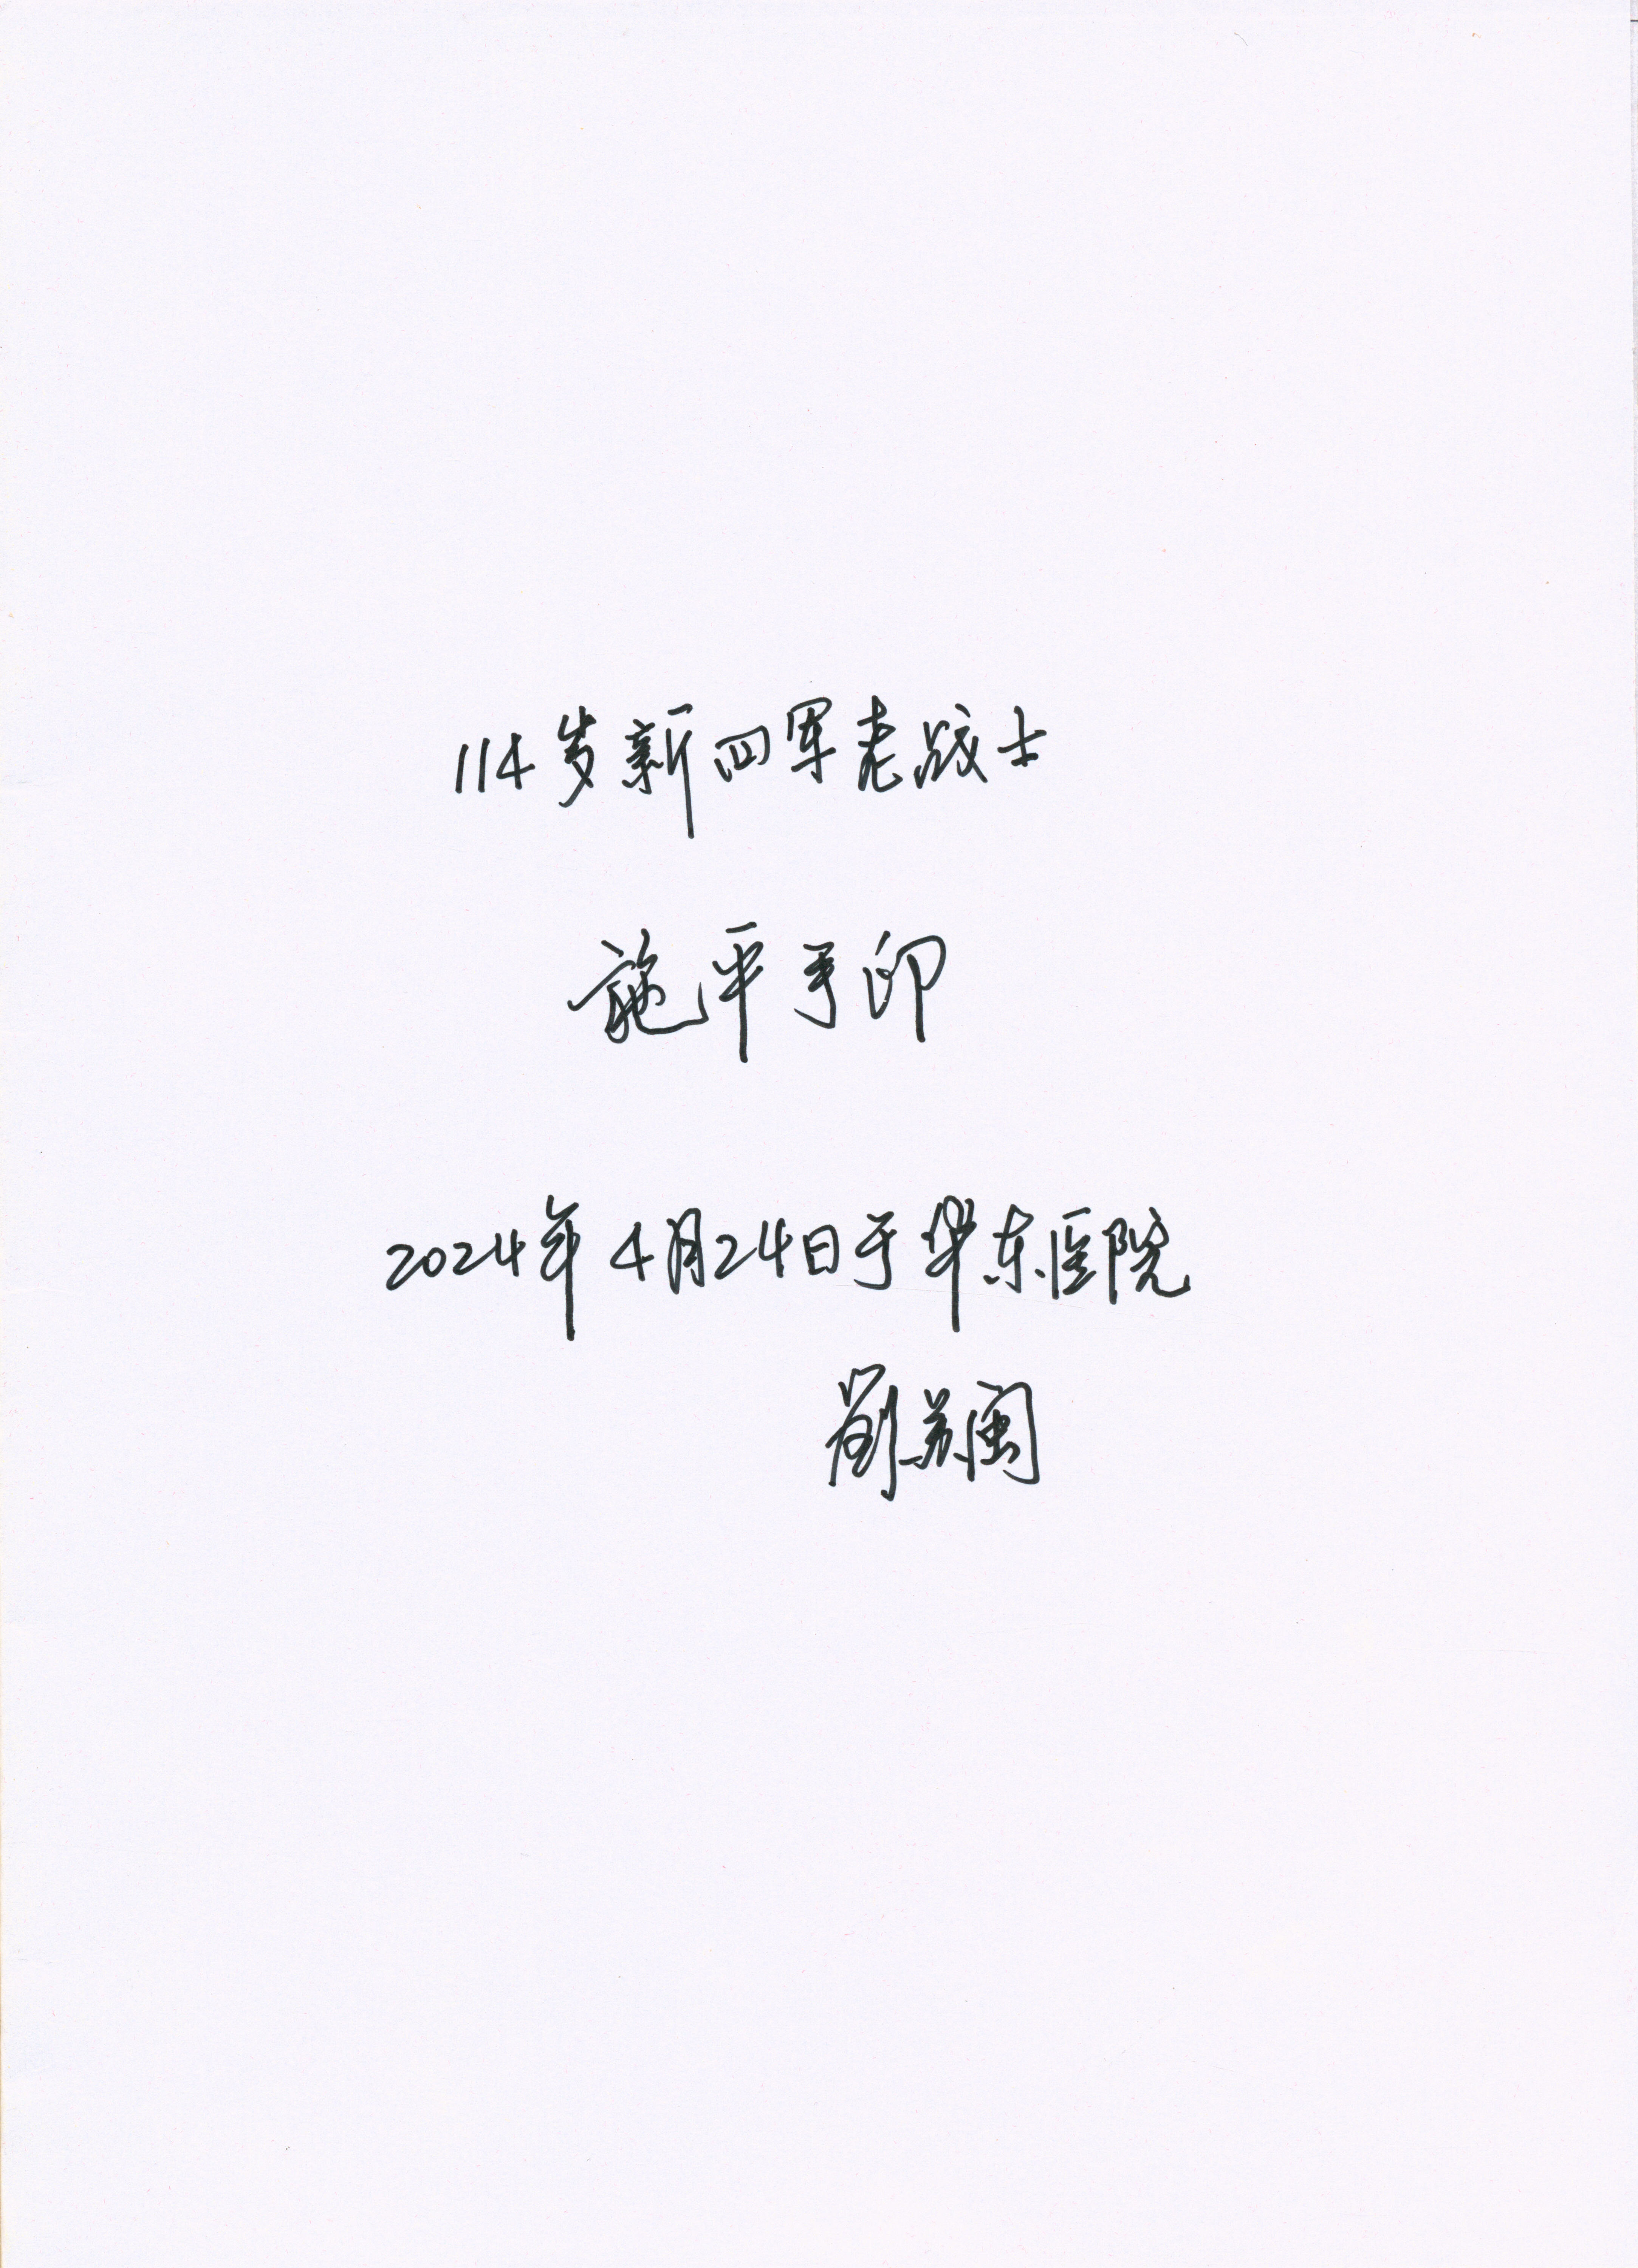 114岁新四军老战士
施平手印
2024年4月24日于华东医院
刘苏闽